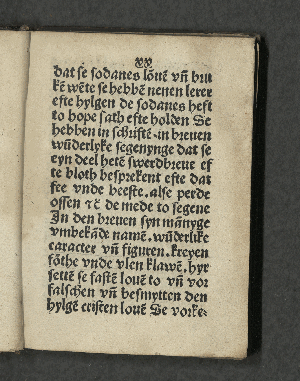 xv
dat se sodanes louē vn̄ bru
kē wēte se hebbē nenen lerer
efte hylgen de sodanes heft
to hope sath efte holden Se
hebben in schriftē ‧ in breuen
wūderlyke segenynge dat se
eyn deel hetē swerdbreue ef
te bloth besprekent efte dat
fee vnde beeste. alse perde
ossen ⁊c̄ de mede to segene
In den breuen syn mānyge
vmbekāde namē. wūderlike
caracter vn̄ figuren. kreyen
fōthe vnde vlen klawē. hyr
settē se fastē louē to vn̄ vor
falschen vn̄ besmytten den
hylgē cristen louē Se vorke⸗